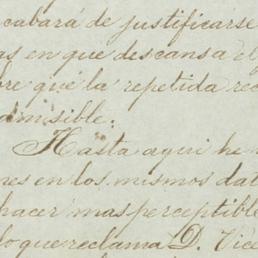 cabará de justificarse
as en que descansa el
re que la repetida rec
dmisible.
Hasta aquí he
nes en los mismos dat
hacer mas perceptible
lo que reclama D. Vice